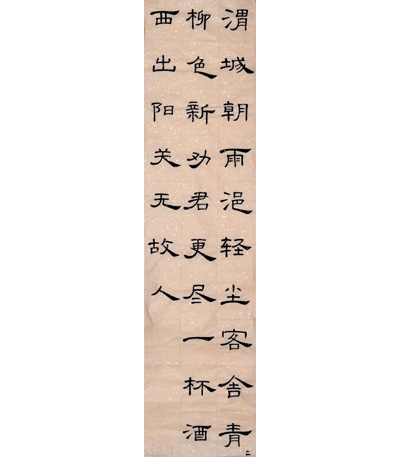 渭城朝雨浥轻尘客舍青二
柳色新劝君更尽一杯酒
西出阳关无故人